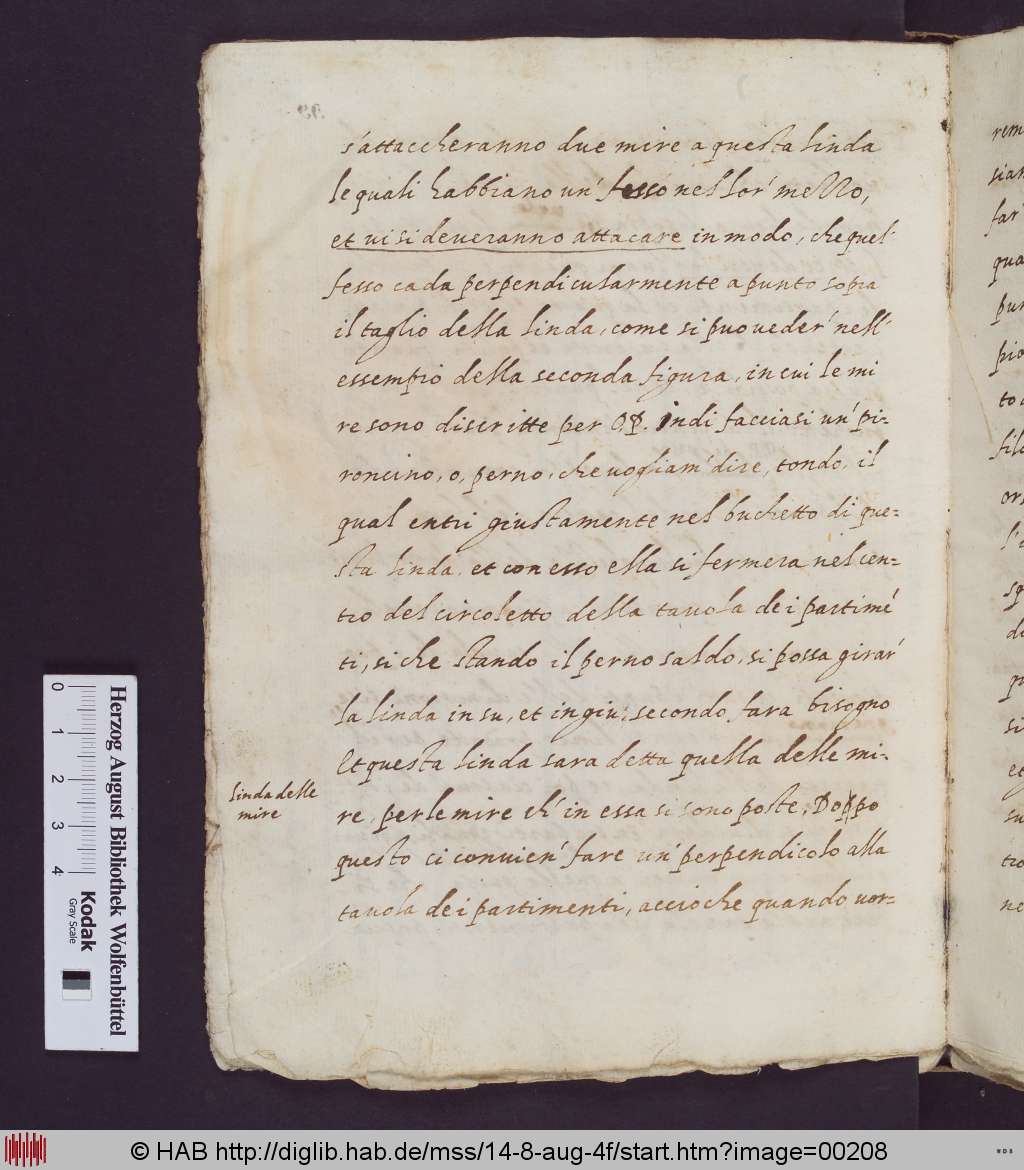 s'attaccheranno due mire a questa linda
le quali habbiano un' fesso nel lor' mezzo,
et vi si deveranno attacare in modo, che quel'
fesso cada perpendicularmente a punto sopra
il taglio della linda, come si puo veder' nell'
essempio della seconda figura, in cui le mi
re sono discritte per O.P. indi facciasi un' pi-
roncino, o, perno, che vogliam' dire, tondo, il
qual entri giustamente nel buchetto di que=
sta linda, et con esso ella si fermera nel cen-
tro del circoletto della tavola de i partimé
ti, si che stando il perno saldo, si possa girar'
la linda in su, et in giu, secondo fara bisogno
Et questa linda sara detta quella delle mi-
linda delle
mire
re, per le mire ch' in essa si sono poste, Doppo
questo ci convien' fare un' perpendicolo alla
tavola de i partimenti, accioche quando vor-
rem
sian
far'
qua
pun
pio
to
filo
l'
di
si
et
su
tro
no
0 1 2 3 4
Herzog August Bibliothek Wolfenbüttel
Kodak
Gray Scale
© HAB http://diglib.hab.de/mss/14-8-aug-4f/start.htm?image=00208